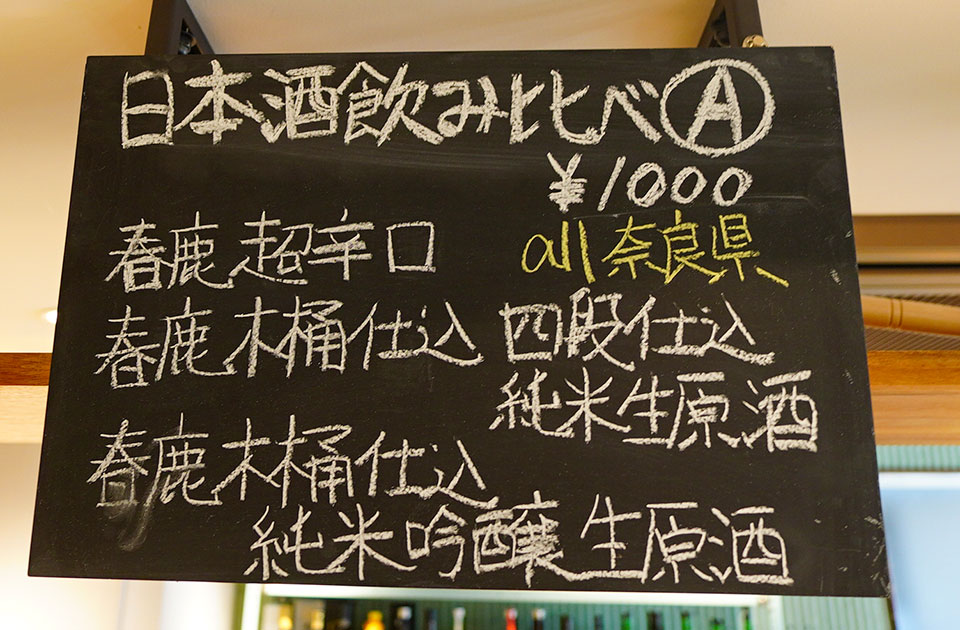 日本酒飲み比べ Ⓐ
¥1000
春鹿 超辛口 all 奈良県
春鹿 木桶仕込 四段仕込
純米生原酒
春鹿 木桶仕込
純米吟醸 生原酒